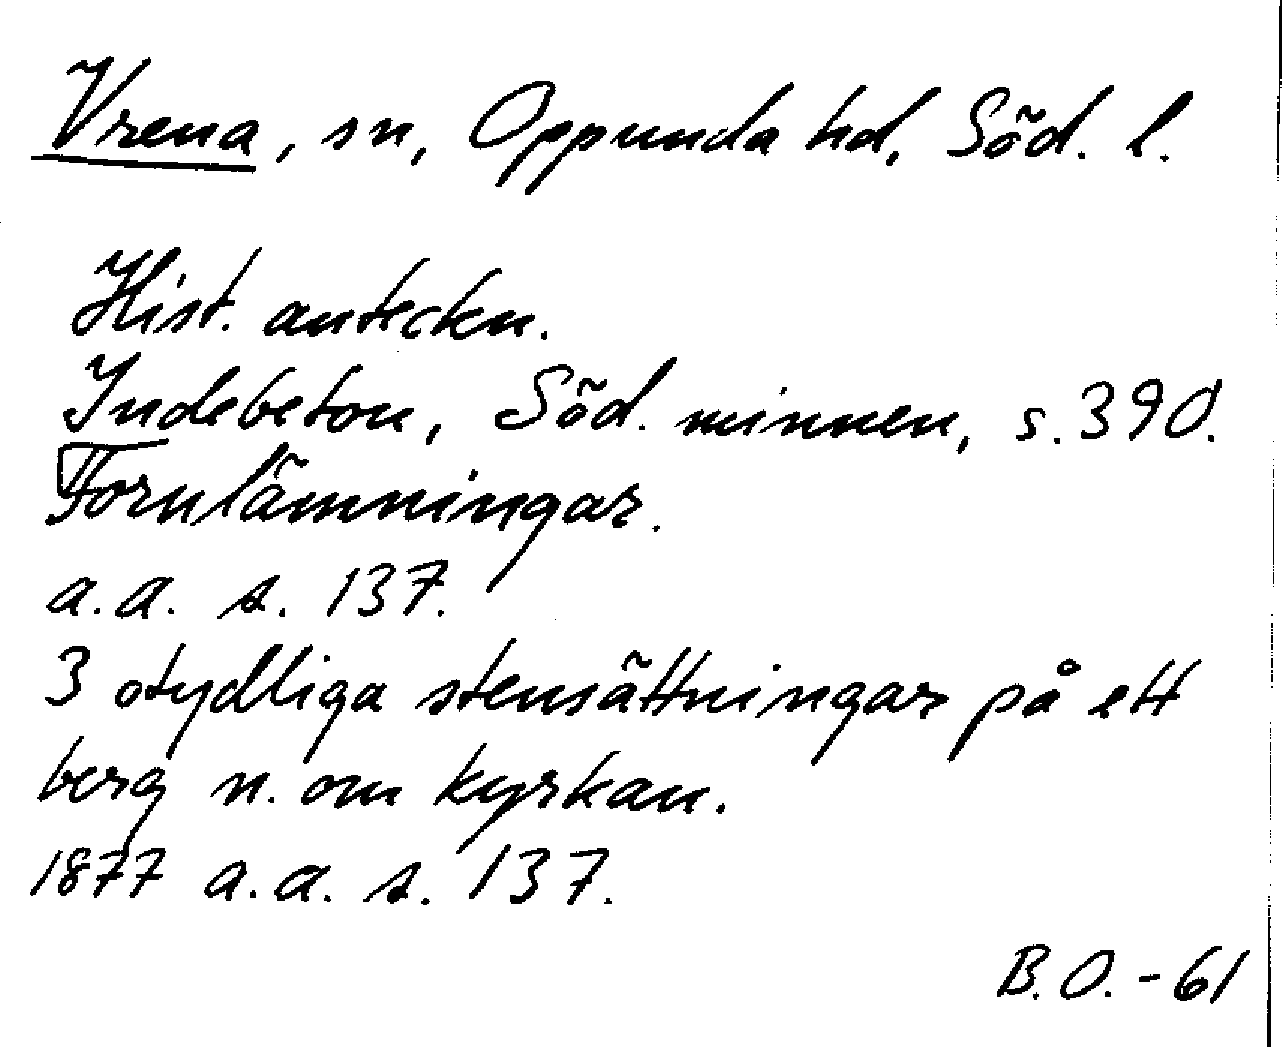 Vrena, sn, Oppunda hd, Söd. l.
Hist. anteckn.
Indebetou, Söd. minnen, s. 390.
Fornlämningar.
a.a. s. 137.
3 otydliga stensättningar på ett
berg n. om kyrkan.
1877 a.a. s. 137.
B.O. - 61